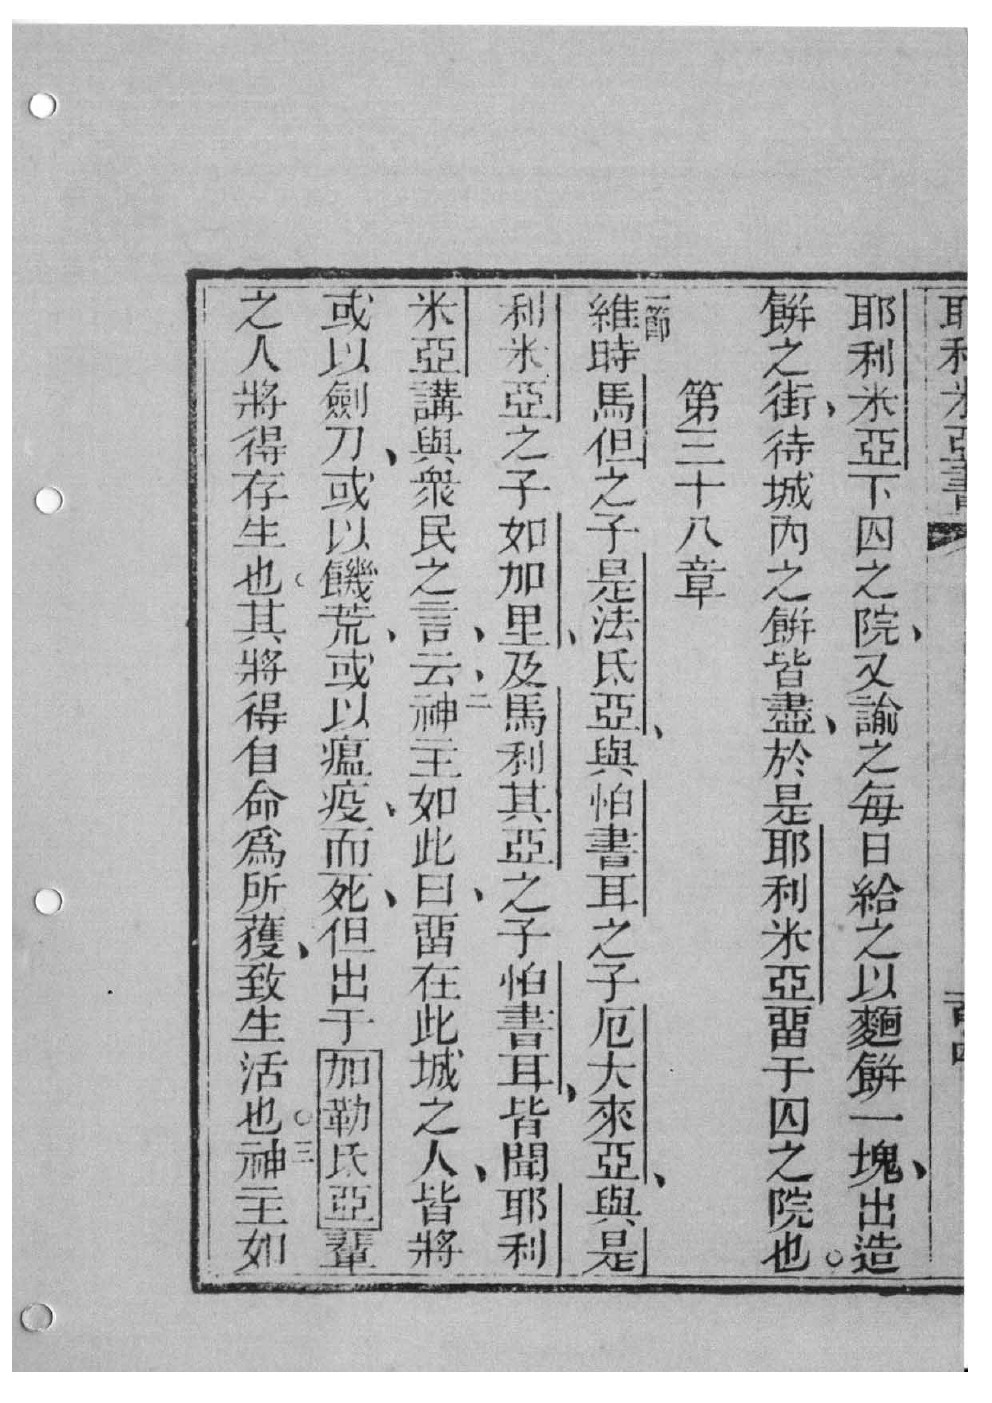 耶利米亞書
耶利米亞下囚之院、又諭之每日給之以麵餅一塊、出造
餅之街、待城內之餅皆盡、於是耶利米亞畱于囚之院也○
第三十八章
一節維時馬但之子是法氐亞、與怕書耳之子厄大來亞、與是
利米亞之子如加里、及馬利其亞之子怕書耳、皆聞耶利
米亞講與衆民之言、云、二神主如此曰、畱在此城之人、皆將
或以劍刀、或以饑荒、或以瘟疫、而死、但出于加勒氐亞輩
之人將得存生也○其將得自命爲所獲、致生活也○三神主如